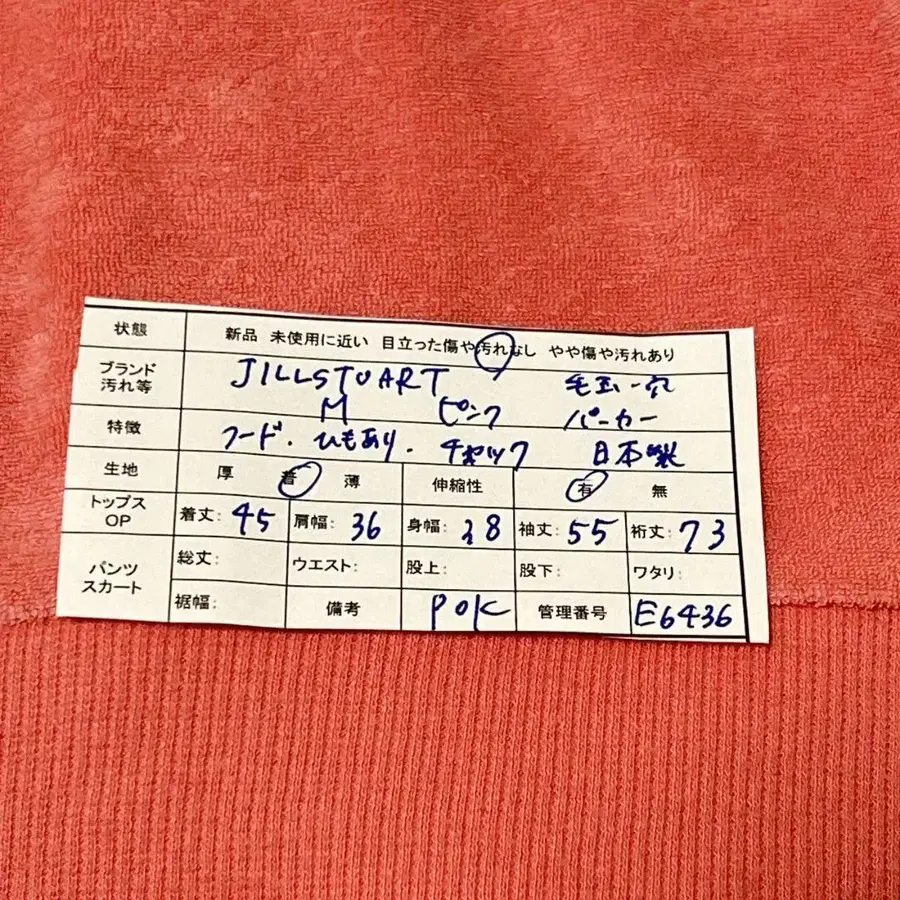 状態 新品 未使用に近い 目立った傷や汚れなし やや傷や汚れあり
ブランド 汚れ等 JILLSTUART 毛玉
M ピンク パーカー
特徴 フード・ひもあり・チャック 日本製
生地 厚 着 薄 伸縮性 有 無
トップス OP 着丈: 45 肩幅: 36 身幅: 38 袖丈: 55 裄丈: 73
パンツ スカート 総丈: ウエスト: 股上: 股下: ワタリ:
裾幅: 備考 POK 管理番号 E6436